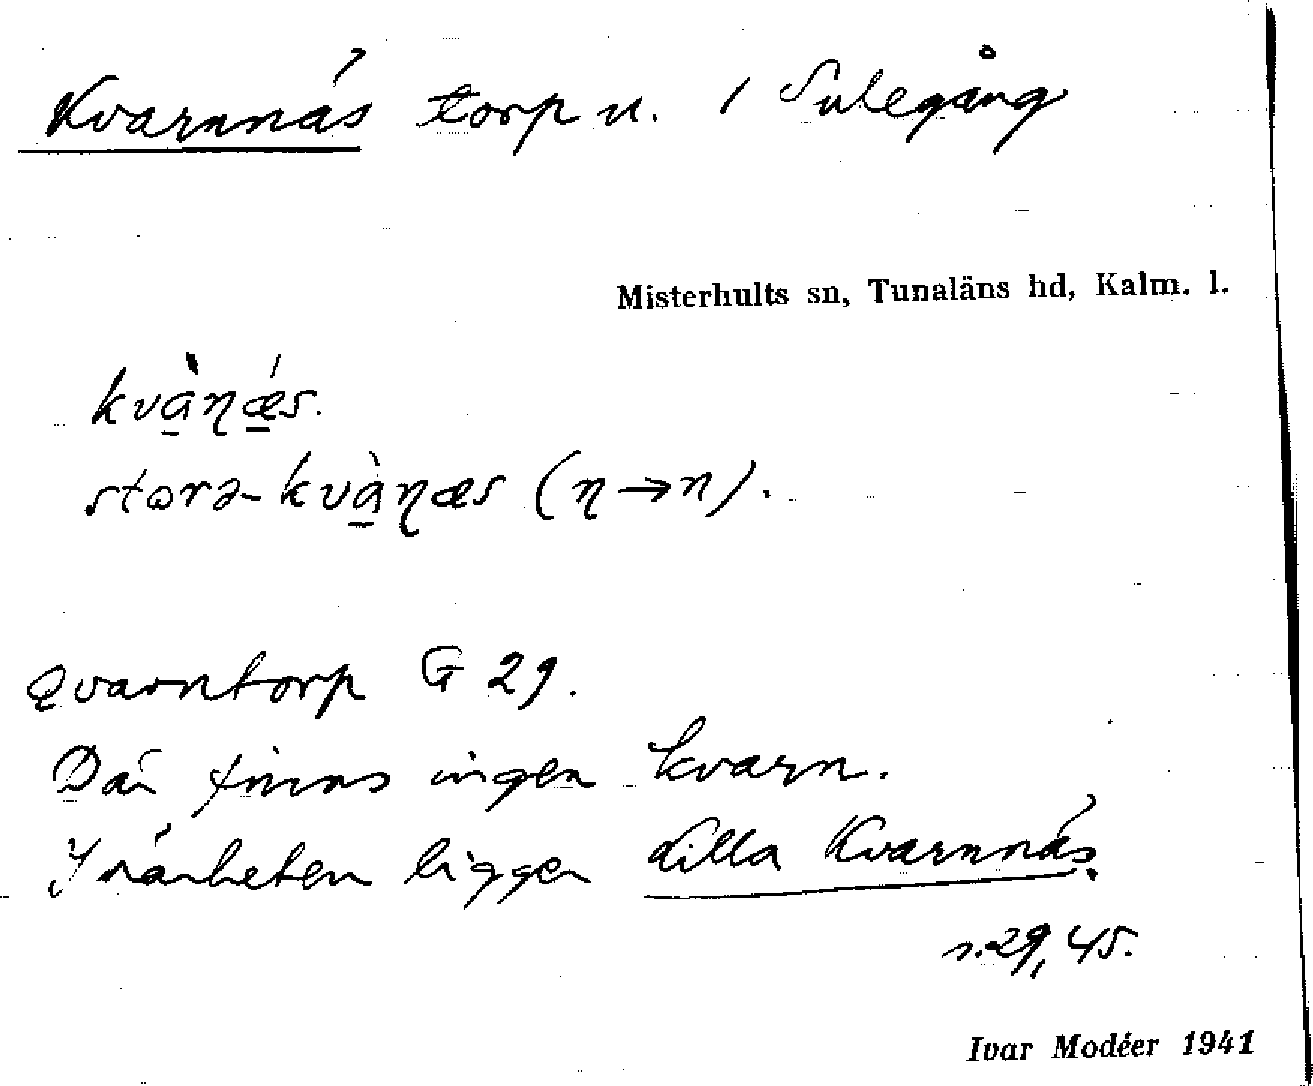 Kvarnnäs torp u. / Sulegång
Misterhults sn, Tunaläns hd, Kalm. l.
kvàɳǽs.
stora-kvàɳæs (ɳ→n).
Qvarntorp G 29.
Där finns ingen kvarn.
I närheten ligger Lilla Kvarnnäs.
s. 29, 45.
Ivar Modéer 1941